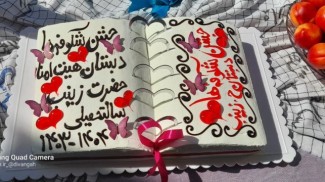 جشن شکوفه ها
دبستان زینب
جشن شکوفه ها
دبستان هیئت امنا
حضرت زینب
سالتحصیلی
۱۴۰۳-۱۴۰۴
ng Quad Camera